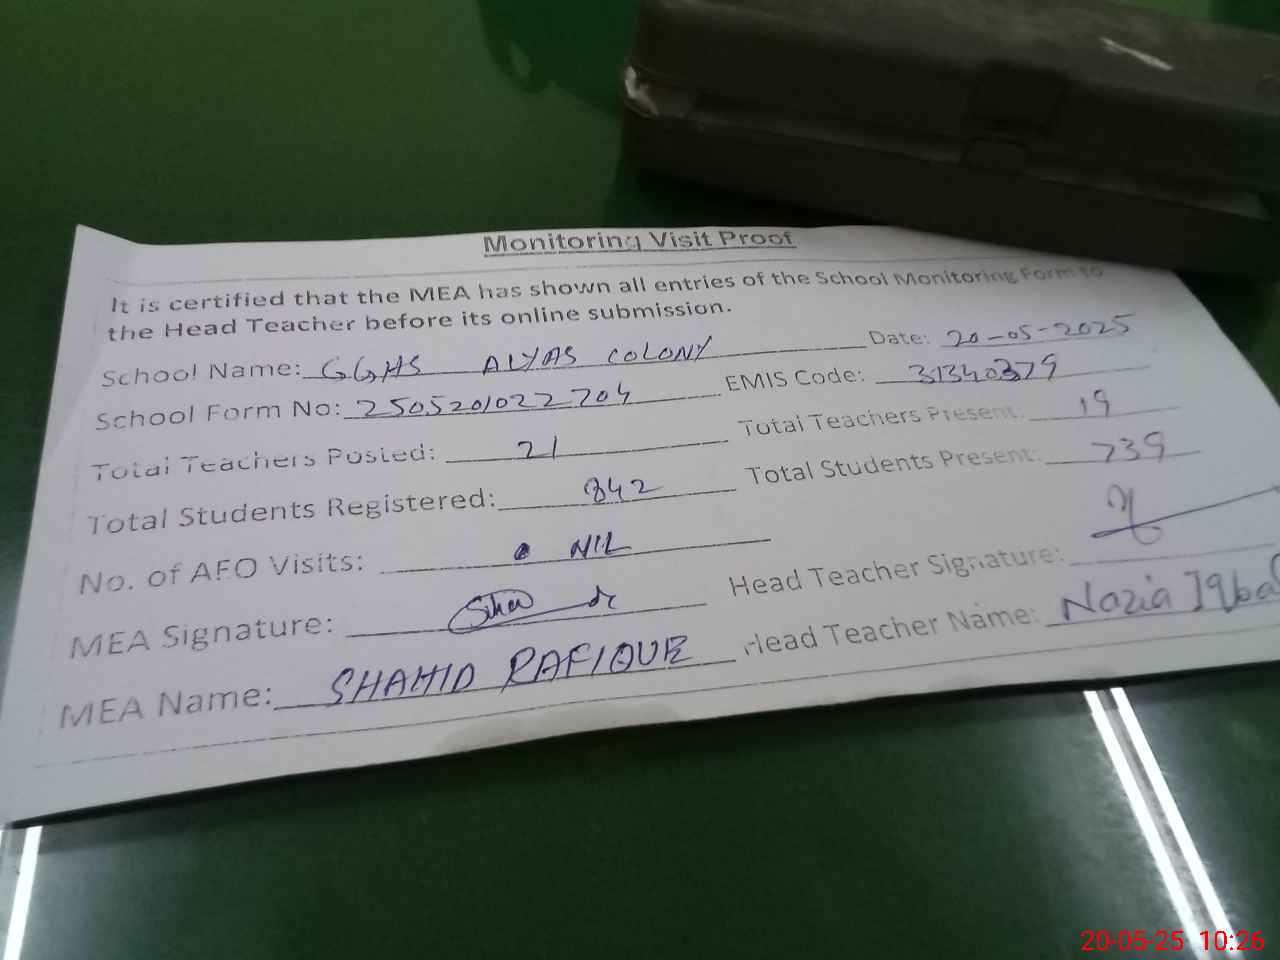 Monitoring Visit Proof
It is certified that the MEA has shown all entries of the School Monitoring Form to
the Head Teacher before its online submission.
School Name: GGHS ALYAS COLONY Date: 20-05-2025
School Form No: 2505201022704 EMIS Code: 31340379
Total Teachers Posted: 21 Total Teachers Present: 19
Total Students Registered: 842 Total Students Present: 739
No. of AEO Visits: NIL
MEA Signature: Head Teacher Signature:
MEA Name: SHAHID RAFIQUE Head Teacher Name: Nazia Iqbal
20-05-25 10:26